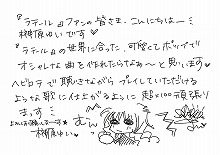 『ラテール』ファンの皆さま、こんにちはー！
榊原ゆいです♥
『ラテール』の世界に合った、可愛くてポップで
オシャレな曲を作れたらなぁ〜と思います♥
ヘビロテで聴きながらプレイしていただける
ような歌に仕上がるように超×100頑張り
まっす！
榊原ゆい♥